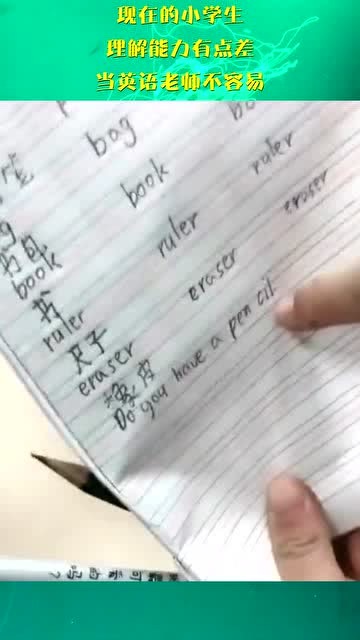 现在的小学生
理解能力有点差
当英语老师不容易
bag
书包
book book
书
ruler ruler ruler
尺子
eraser eraser eraser
橡皮
Do you have a pen cil